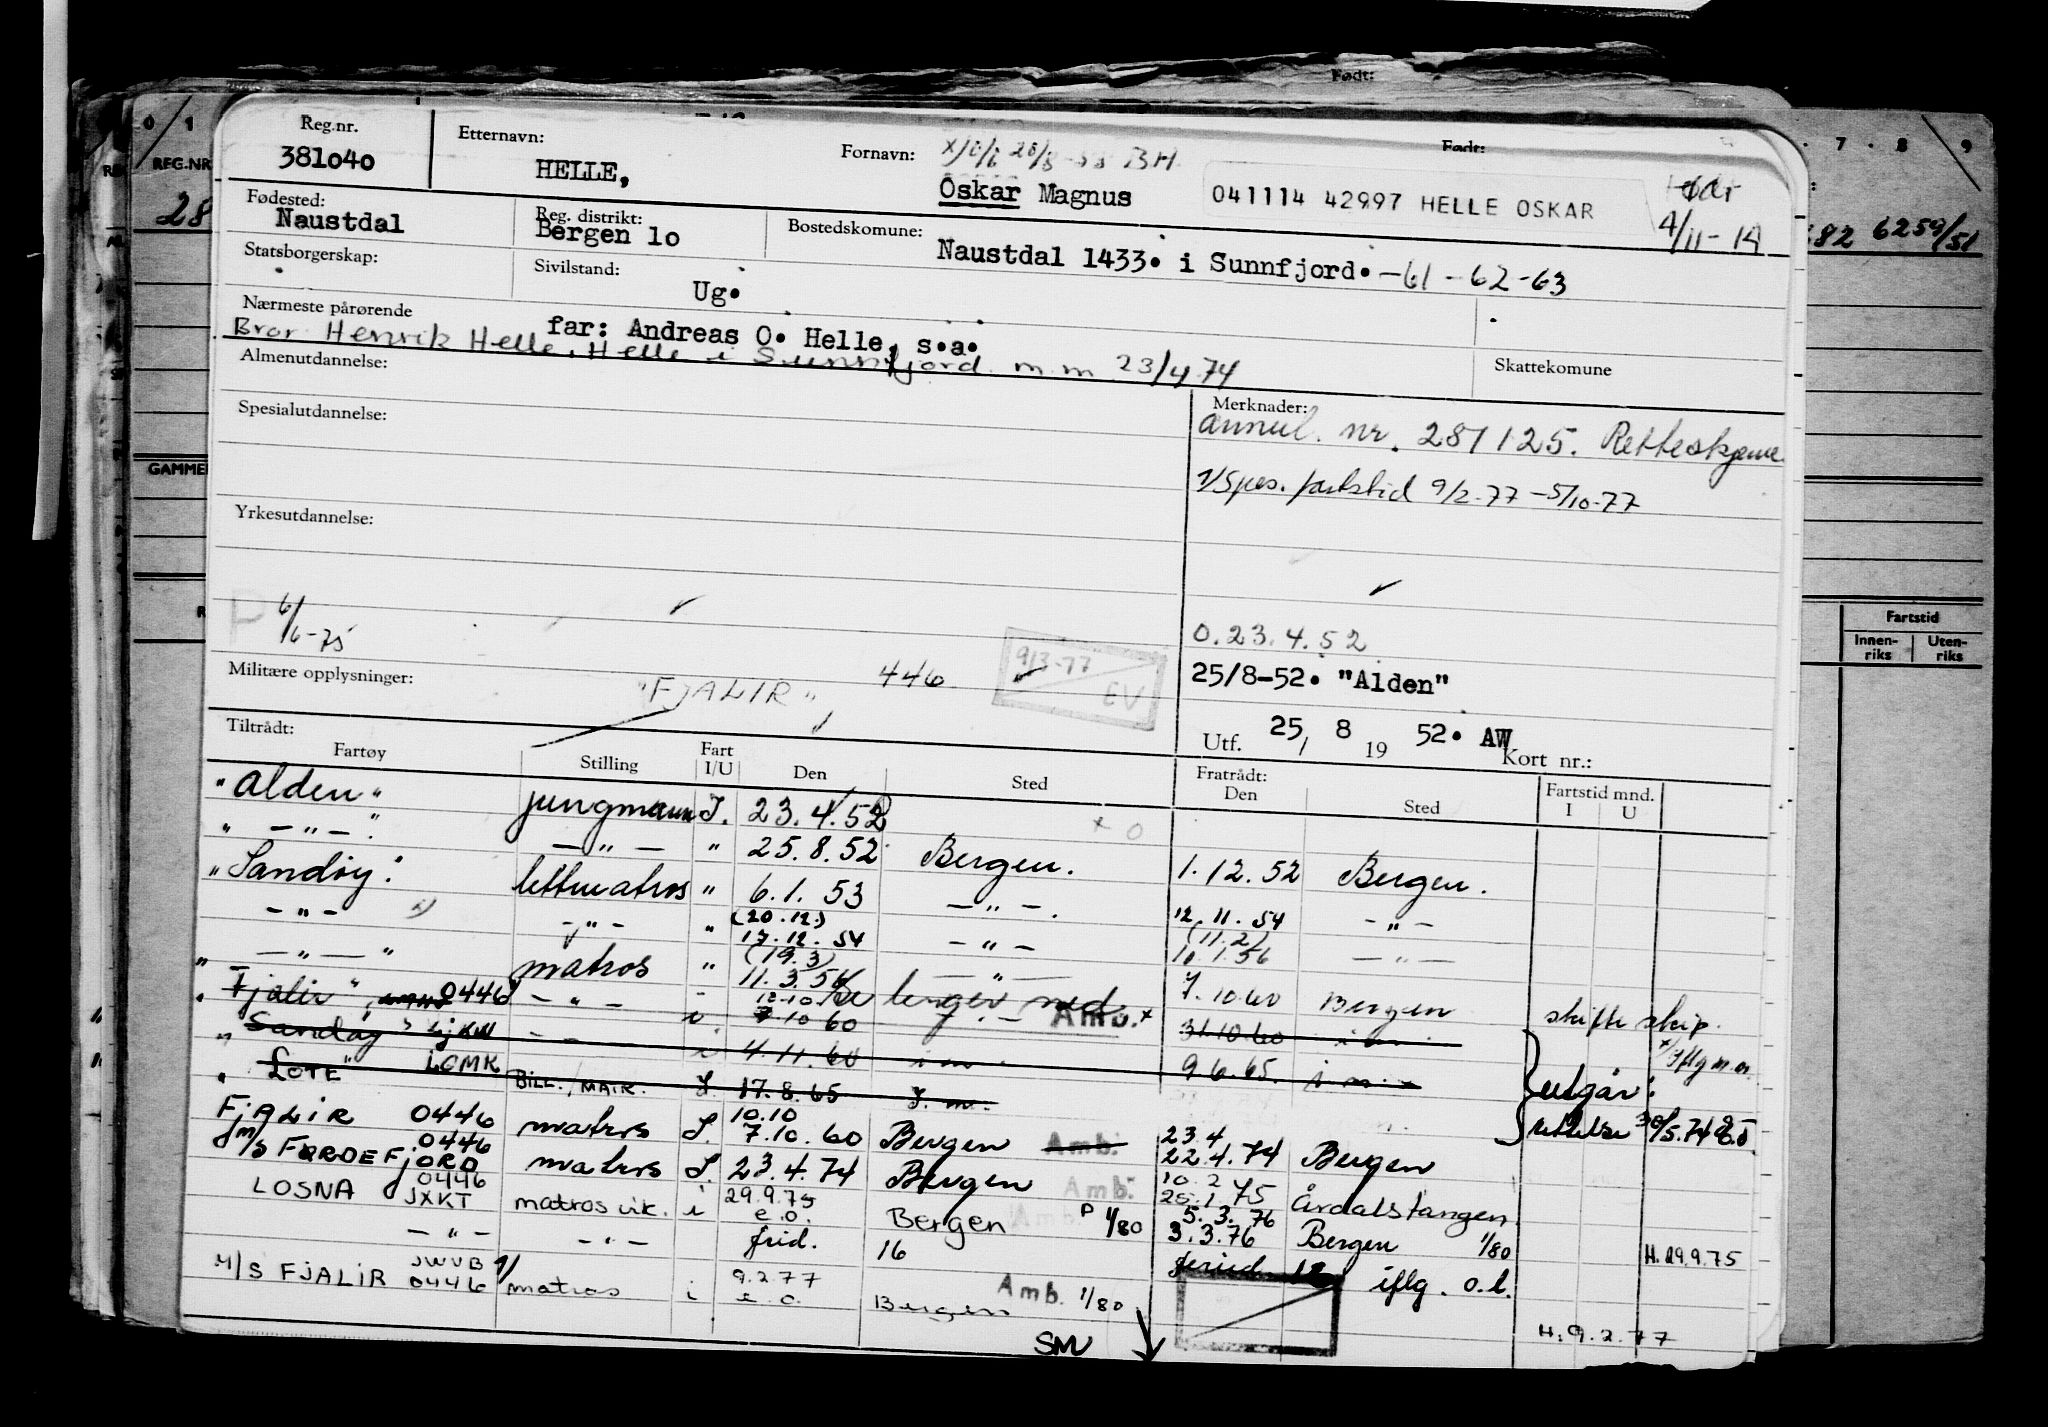 Født:
0 1
REG.NR
28
GAMMEL
7 8 9
682 6259/51
Fartstid
Innen-
riks
Uten-
riks
Reg.nr.
381040
Etternavn:
HELLE,
Fornavn:
Oskar Magnus
Født:
041114 42997 HELLE OSKAR
4/11-14
Fødested:
Naustdal
Reg. distrikt:
Bergen 10
Bostedskomune:
Naustdal 1433. i Sunnfjord. -61-62-63
Statsborgerskap:
Sivilstand:
Ug.
Nærmeste pårørende
far: Andreas O. Helle, s.a.
Bror Henrik Helle, Helle i Sunnfjord m.m 23/4 74
Almenutdannelse:
Skattekomune
Spesialutdannelse:
Merknader:
annul. nr. 281125. Retteskjema
1/ Spes. fartstid 9/2-77 - 5/10-77
Yrkesutdannelse:
6/6-75
0.23.4.52
9/3-77
EV
Militære opplysninger:
"FJALIR" 446
25/8-52. "Alden"
Utf. 25/ 8 19 52. AW
Kort nr.:
Tiltrådt:
Fartøy Stilling Fart I/U Den Sted
Fratrådt:
Den Sted
Fartstid mnd.
I U
"Alden" jungmann I. 23.4.52 x 0
" — " — " — " — " 25.8.52 Bergen. 1.12.52 Bergen.
"Sandøy" lettmatros " 6.1.53 — " — 12.11.54 — " —
— " — — " — " (20.12.) 17.12.54 — " — (11.2) 10.1.56 — " —
" — " — " matros " (19.3) 11.3.56 — " — 7.10.60 Bergen skifte skip.
"Fjalir" 0446 — " — 12.10 7.10 60 Amb.x 31.10.60 i m. x/ iflg m.m.
"Sandøy" LJKW — " — i 4.11.60 i m. 9.6.65. i m. utgår:
"LOTE" LGMK BILL./MATR. I. 17.8.65 I. m. rettelse 30/5.74
FJALIR 0446 matros I. 10.10 7.10.60 Bergen Amb. 23.4 22.4.74 Bergen
m/s FØRDEFJORD 0446 matros I. 23.4.74 Bergen Amb. 10.2 25.1.75 Årdalstangen
LOSNA 0446 JXKT matros vik. i 29.9.75 e.o. Bergen Amb. P 1/80 5.3.76 3.3.76 Bergen 1/80 H. 29.9.75
— " — — " — frid. 16 iflg. o.l.
M/S FJALIR JWVB 0446 1/ matros i 9.2.77 e.o. Bergen Amb. 1/80 H. 9.2.77
SMV